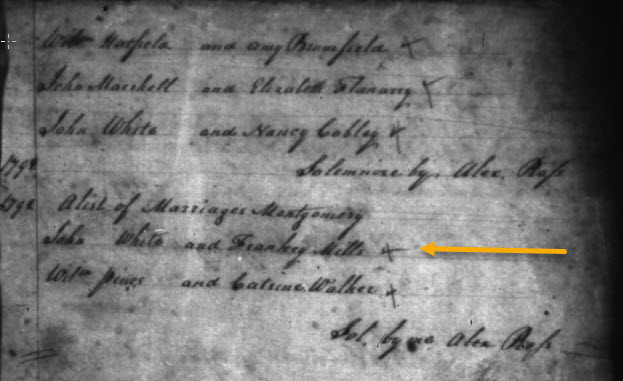 Wilm Hatfield and Amy Brumfield
John Marshell and Elizabeth Flanary
John White and Nancy Cobley
1798 Solemnize by, Alex. Ross
1798 A list of Marriages Montgomery
John White and Frankey Mills
Wilm and Catrine Walker
Sol. by me Alex Ross